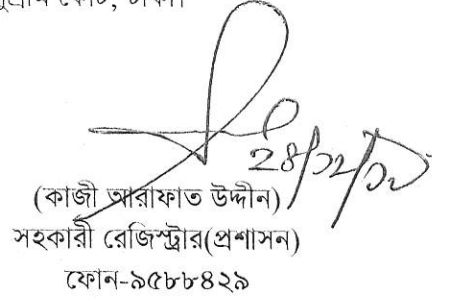 কোর্ট, ঢাকা।
(কাজী আরাফাত উদ্দীন)
সহকারী রেজিস্ট্রার(প্রশাসন)
ফোন-৯৫৮৮৪২৯